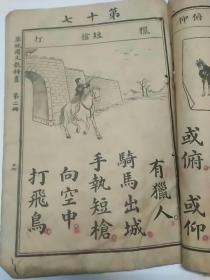 第十七
獵
短槍
打
有獵人
騎馬出城
手執短槍
向空中
打飛鳥
國文教科書 第二冊
俯仰
或俯或仰